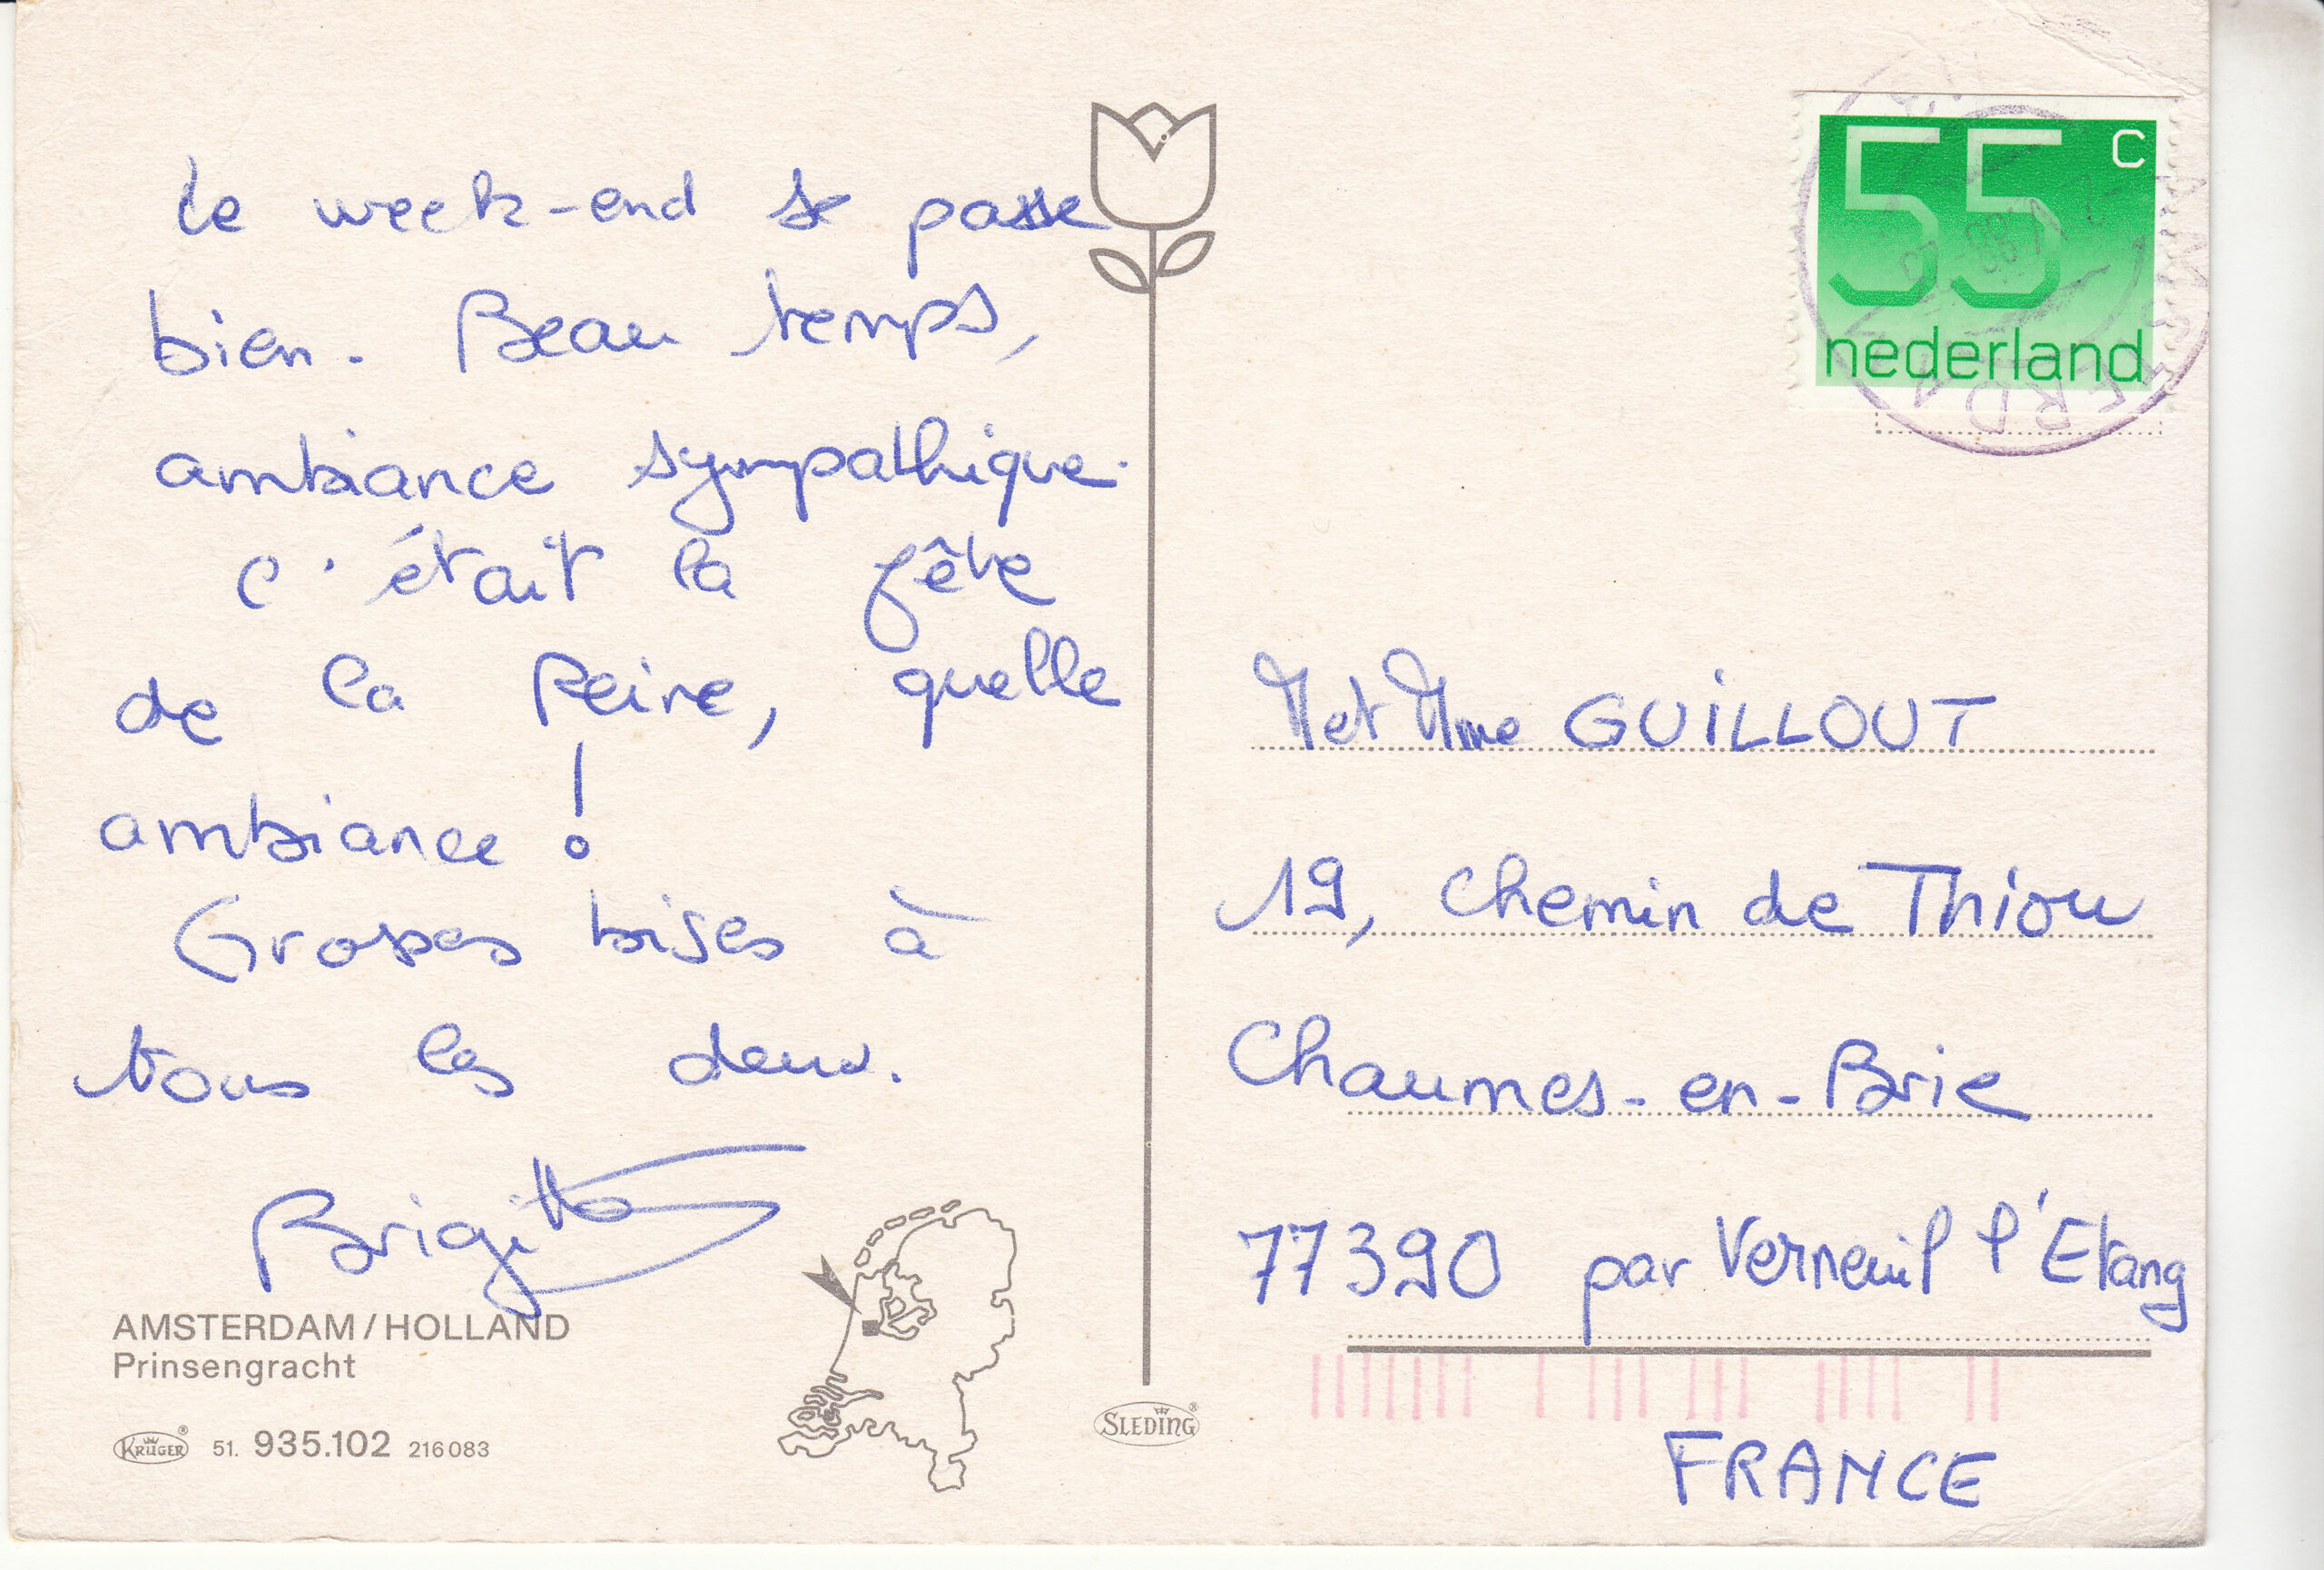 Le week-end se passe
bien. Beau temps,
ambiance sympathique.
C'était la fête
de la Reine, quelle
ambiance !
Grosses bises à
tous les deux.
Brigitte
AMSTERDAM / HOLLAND
Prinsengracht
KRÜGER® 51. 935.102 216083
SLEDING®
55 c
nederland
M et Mme GUILLOUT
19, chemin de Thiou
Chaumes-en-Brie
77390 par Verneuil l'Etang
FRANCE